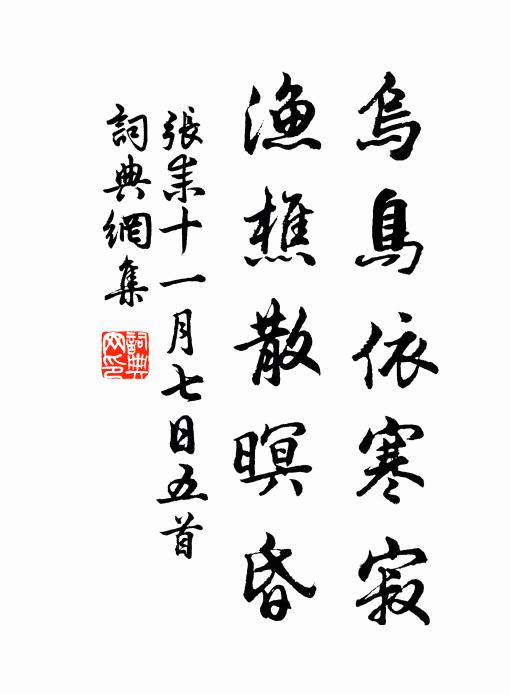 烏鳥依寒寂
漁樵散暝昏
張耒十一月七日五首
詞典網集
詞典
网印